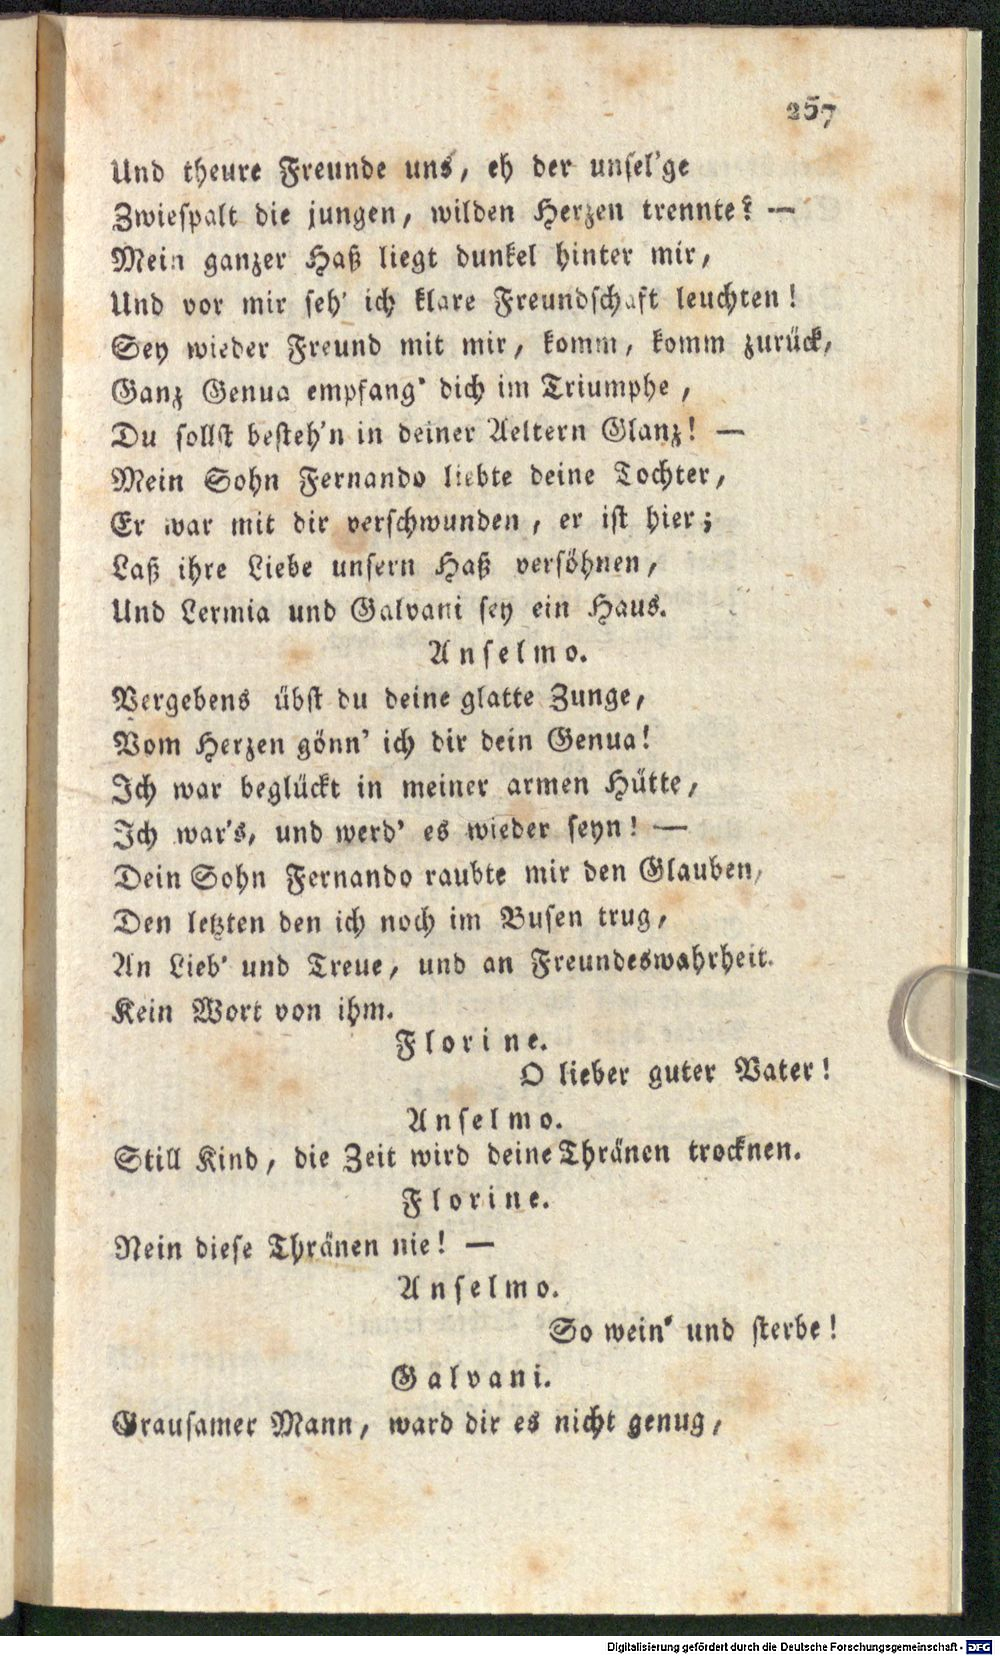 257
Und theure Freunde uns, eh der unsel'ge
Zwiespalt die jungen, wilden Herzen trennte? —
Mein ganzer Haß liegt dunkel hinter mir,
Und vor mir seh' ich klare Freundschaft leuchten!
Sey wieder Freund mit mir, komm, komm zurück,
Ganz Genua empfang' dich im Triumphe,
Du sollst besteh'n in deiner Aeltern Glanz! —
Mein Sohn Fernando liebte deine Tochter,
Er war mit dir verschwunden, er ist hier;
Laß ihre Liebe unsern Haß versöhnen,
Und Lermia und Galvani sey ein Haus.
Anselmo.
Vergebens übst du deine glatte Zunge,
Vom Herzen gönn' ich dir dein Genua!
Ich war beglückt in meiner armen Hütte,
Ich war's, und werd' es wieder seyn! —
Dein Sohn Fernando raubte mir den Glauben,
Den letzten den ich noch im Busen trug,
An Lieb' und Treue, und an Freundeswahrheit.
Kein Wort von ihm.
Florine.
O lieber guter Vater!
Anselmo.
Still Kind, die Zeit wird deine Thränen trocknen.
Florine.
Nein diese Thränen nie! —
Anselmo.
So wein' und sterbe!
Galvani.
Grausamer Mann, ward dir es nicht genug,
Digitalisierung gefördert durch die Deutsche Forschungsgemeinschaft - DFG